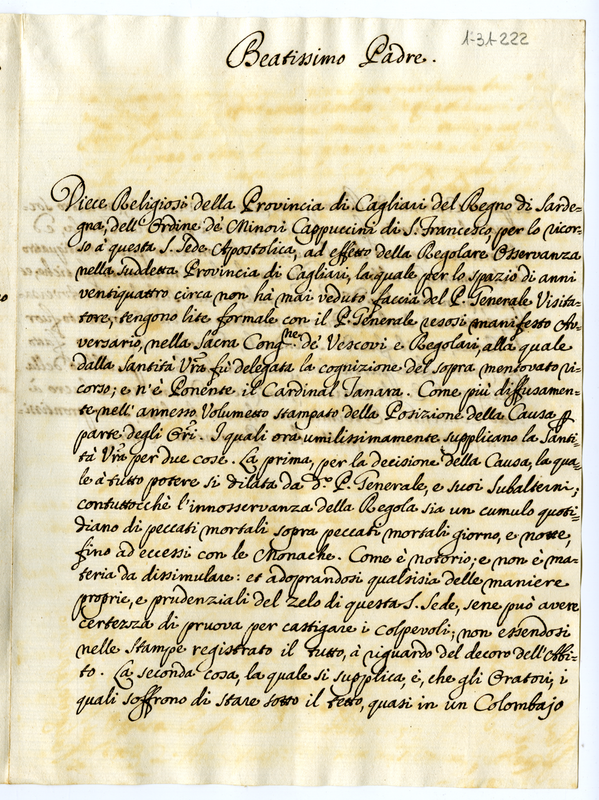 1-31-222
Beatissimo Padre.
Diece Religiosi della Provincia di Cagliari del Regno di Sarde=
gna, dell'Ordine de' Minori Cappuccini di S. Francesco, per lo ricor=
so à questa S. Sede Apostolica, ad effetto della Regolare Osservanza
nella suddetta Provincia di Cagliari, la quale per lo spazio di anni
ventiquattro circa non hà mai veduto faccia del P. Generale Visita=
tore, tengono lite formale con il P. Generale resosi manifesto Av=
versario, nella Sacra Cong.ne de' Vescovi e Regolari, alla quale
dalla Santità Vrã fù delegata la cognizione del sopra mentovato ri=
corso; e n'è Ponente il Cardinal Tanara. Come più diffusamen=
te nell'annesso Volumetto stampato della Posizione della Causa ꝑ
parte degli Orri. I quali ora umilissimamente supplicano la Santi=
tà Vrã per due cose. La prima, per la decisione della Causa, la qua=
le à tutto potere si dilata da d.o P. Generale, e suoi Subalterni;
contuttocchè l'innosservanza della Regola sia un cumulo quoti=
diano di peccati mortali sopra peccati mortali giorno, e notte,
fino ad eccessi con le Monache. Come è notorio; e non è ma=
teria da dissimulare: et adoprandosi qualsisia delle maniere
proprie, e prudenziali del zelo di questa S. Sede, sene può avere
certezza di pruova per castigare i colpevoli; non essendosi
nelle stampe registrato il tutto, à riguardo del decoro dell'Abi=
to. La seconda cosa, la quale si supplica, è, che gli Oratori, i
quali soffrono di stare sotto il tetto, quasi in un Colombajo